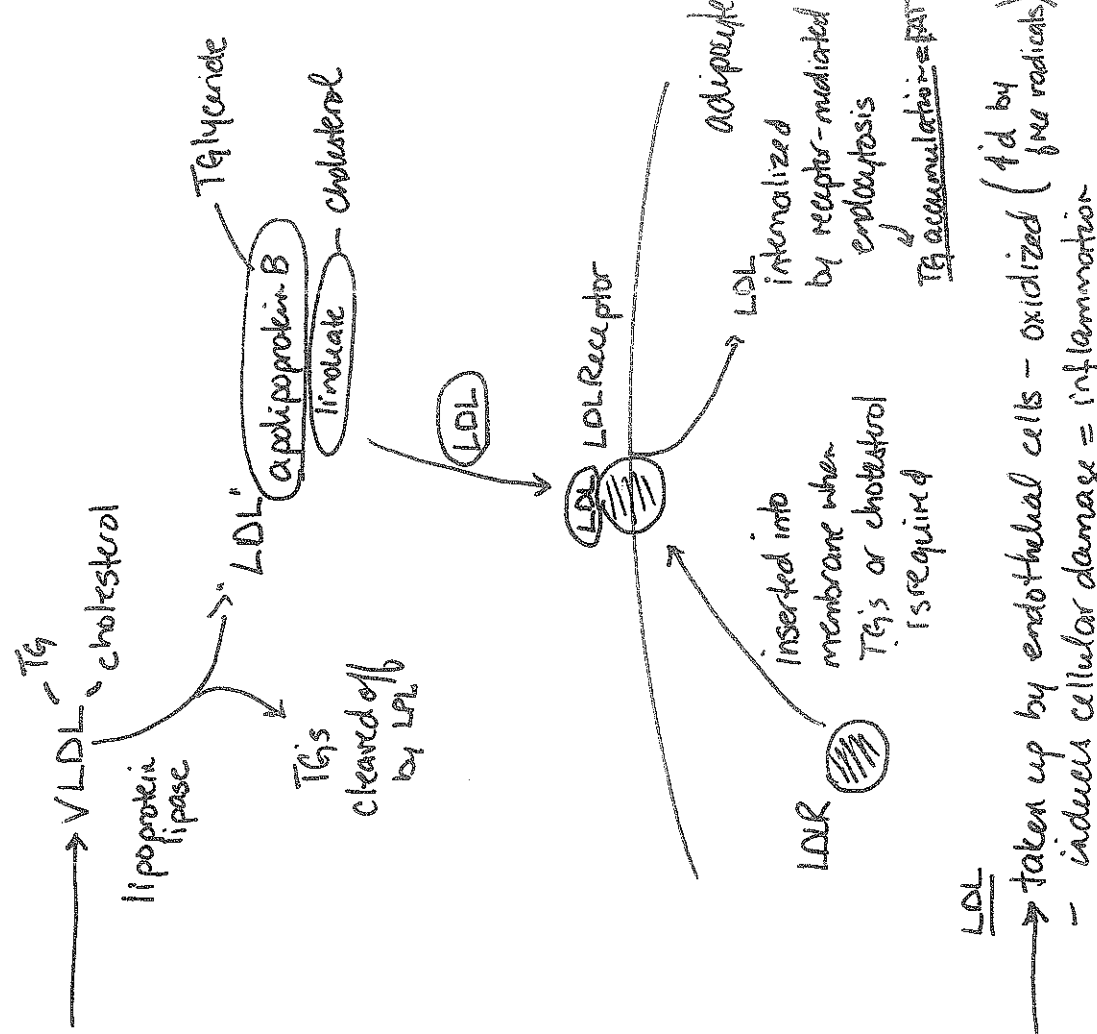 TG
VLDL
cholesterol
lipoprotein
lipase
TG's
cleaved off
by LPL
"LDL"
TGlyceride
apolipoprotein B
linoleate
cholesterol
LDL
LDL
LDL Receptor
LDLR
inserted into
membrane when
TG's or cholesterol
is required
adipocyte
LDL
internalized
by receptor-mediated
endocytosis
TG accumulation = FAT
LDL
taken up by endothelial cells - oxidized (↑'d by
free radicals)
- induces cellular damage = inflammation